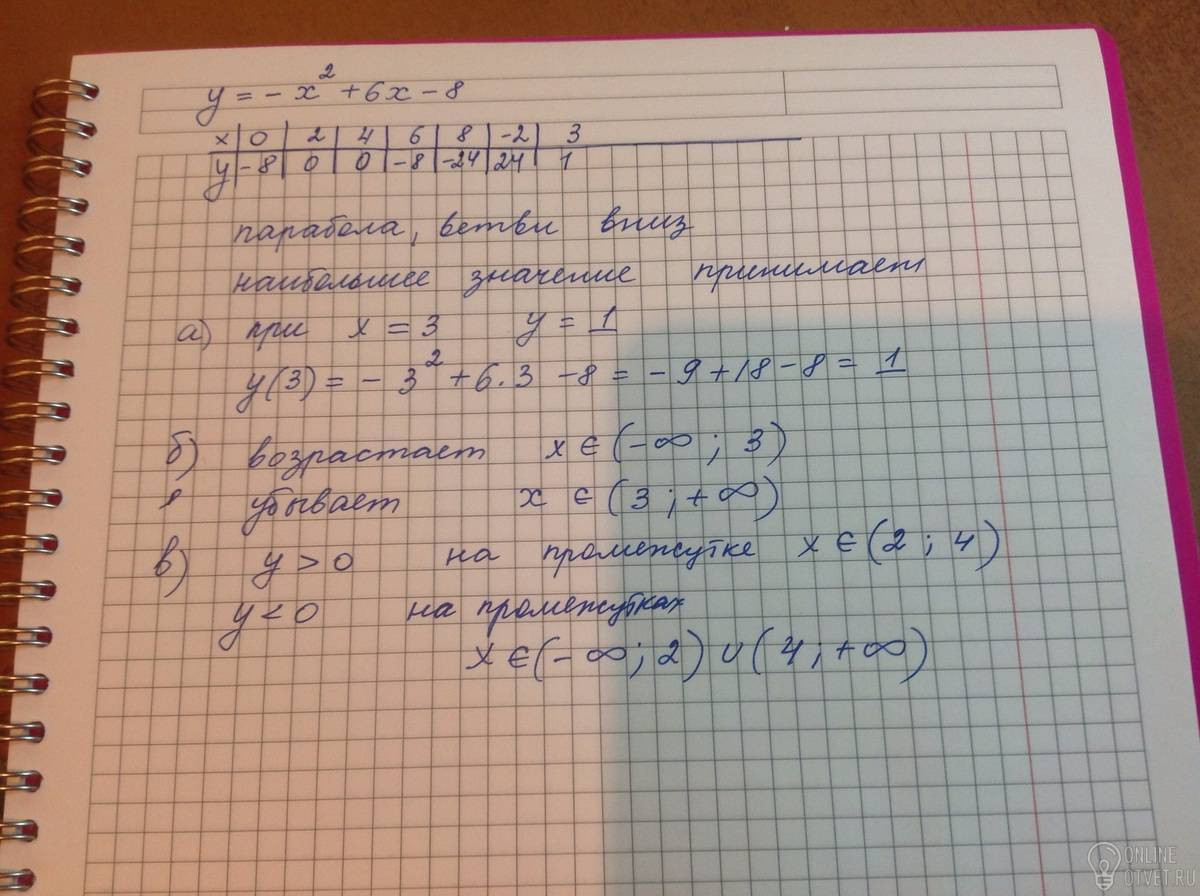 y = - x² + 6x - 8
x | 0 | 2 | 4 | 6 | 8 | -2 | 3
y | -8 | 0 | 0 | -8 | -24 | 24 | 1
парабола, ветви вниз
наибольшее значение принимает
а) при x = 3 y = 1
y(3) = - 3² + 6 · 3 - 8 = - 9 + 18 - 8 = 1
б) возрастает x ∈ (-∞ ; 3)
убывает x ∈ (3 ; +∞)
в) y > 0 на промежутке x ∈ (2 ; 4)
y < 0 на промежутках
x ∈ (-∞ ; 2) ∪ (4 ; +∞)
ONLINE
OTVET.RU